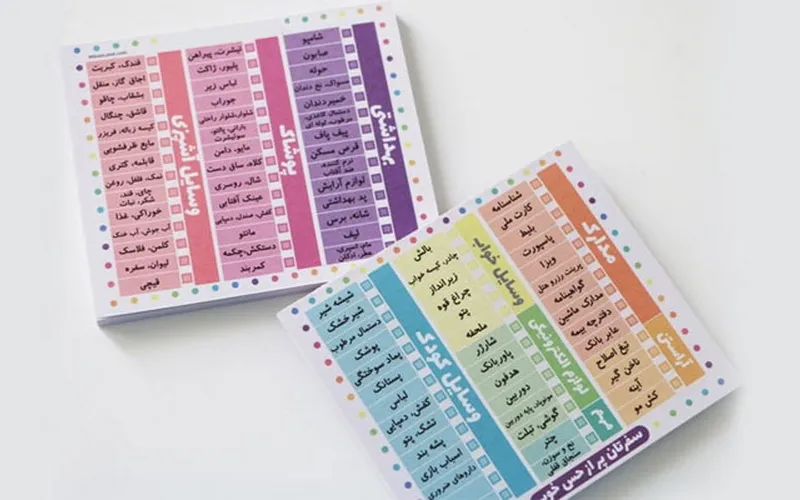 بهداشتی
شامپو
صابون
حوله
مسواک، نخ دندان
خمیردندان
دستمال کاغذی،
مرطوب، لوله ای
پیف پاف
قرص مسکن
نرم کننده،
ضد آفتاب
لوازم آرایش
پد بهداشتی
شانه، برس
لیف
عطر، ادکلن
پوشاک
تیشرت، پیراهن
پلیور، ژاکت
لباس زیر
جوراب
شلوار، شلوار راحتی
بارانی، پالتو،
سوئیشرت
مایو، دامن
کلاه، ساق دست
شال، روسری
عینک آفتابی
کفش، صندل، دمپایی
مانتو
دستکش، چکمه
کمربند
وسایل آشپزی
فندک، کبریت
اجاق گاز، منقل
بشقاب، چاقو
قاشق، چنگال
کیسه زباله، فریزر
مایع ظرفشویی
قابلمه، کتری
نمک، فلفل، روغن
چای، قند،
شکر، نبات
خوراکی، غذا
آب جوش، آب خنک
کلمن، فلاسک
لیوان، سفره
قیچی
مدارک
شناسنامه
کارت ملی
بلیط
پاسپورت
ویزا
پرینت رزرو هتل
گواهینامه
مدارک ماشین
دفترچه بیمه
عابر بانک
آراستن
تیغ اصلاح
ناخن گیر
آینه
کش مو
وسایل خواب
بالش
چادر، کیسه خواب
زیرانداز
چراغ قوه
پتو
ملحفه
لوازم الکترونیکی
شارژر
پاوربانک
هدفون
دوربین
مونوپاد، پایه دوربین
گوشی، تبلت
چتر
نخ و سوزن،
سنجاق قفلی
وسایل کودک
شیشه شیر
شیرخشک
دستمال مرطوب
پوشک
پماد سوختگی
پستانک
لباس
کفش، دمپایی
تشک، پتو
پشه بند
اسباب بازی
داروهای ضروری
سفرتان پر از حس خوب